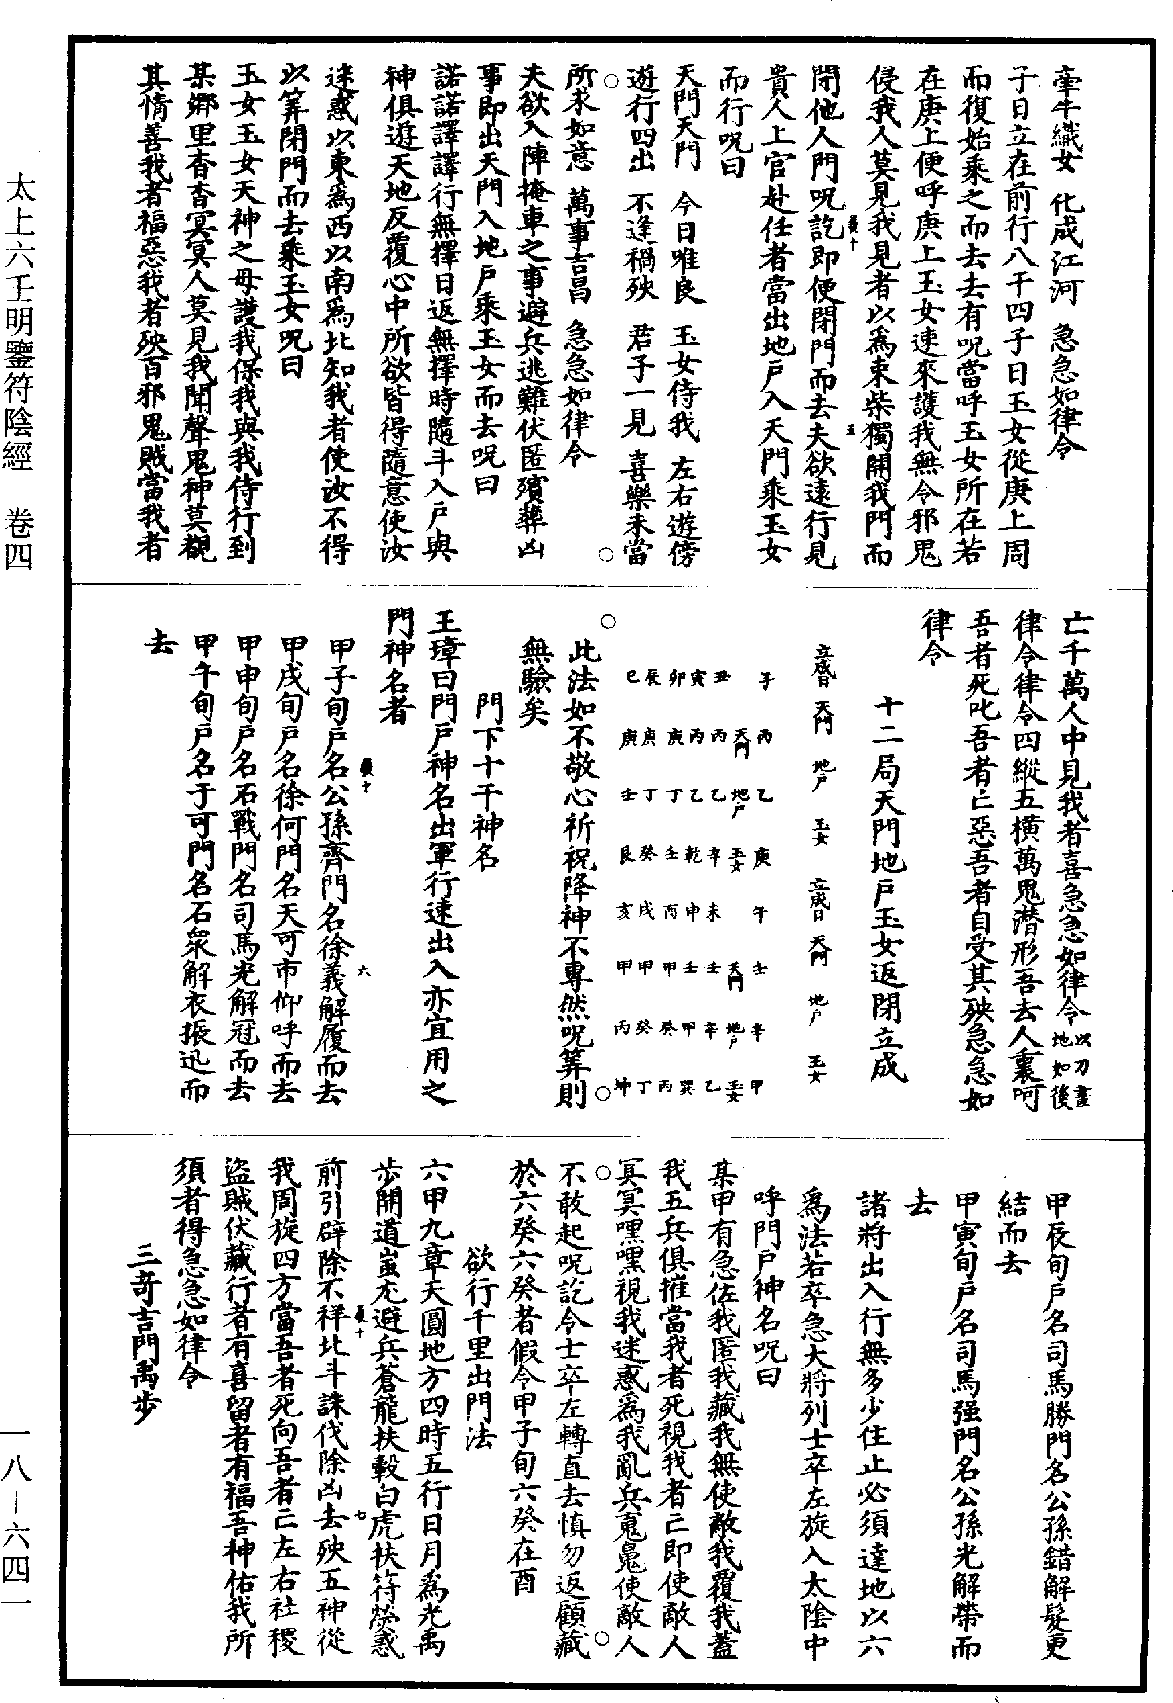 太上六壬明鑒符陰經　卷四
一八—六四一
牽牛織女　化成江河　急急如律令
子日立在前行八千四子日玉女從庚上周
而復始乘之而去去有呪當呼玉女所在若
在庚上便呼庚上玉女速來護我無令邪鬼
侵我人莫見我見者以爲束柴獨開我門而
閉他人門呪訖即便閉門而去夫欲遠行見
貴人上官赴任者當出地戶入天門乘玉女
而行呪曰
天門天門　今日唯良　玉女侍我　左右遊傍
遊行四出　不逢禍殃　君子一見　喜樂未當
所求如意　萬事吉昌　急急如律令
夫欲入陣掩車之事避兵逃難伏匿殯葬凶
事即出天門入地戶乘玉女而去呪曰
諾諾譯譯行無擇日返無擇時隨斗入戶與
神俱遊天地反覆心中所欲皆得隨意使汝
迷惑以東爲西以南爲北知我者使汝不得
以筭閉門而去乘玉女呪曰
玉女玉女天神之母護我保我與我侍行到
某鄉里杳杳冥冥人莫見我聞聲鬼神莫覩
其情善我者福惡我者殃百邪鬼賊當我者
亡千萬人中見我者喜急急如律令以刀畫地如後
律令律令四縱五橫萬鬼潛形吾去人裏呵
吾者死叱吾者亡惡吾者自受其殃急急如
律令
十二局天門地戶玉女返閉立成
立成日　天門　地戶　玉女　立成日　天門　地戶　玉女
子　丙　乙　庚　午　壬　辛　甲
天門　地戶　玉女　天門　地戶　玉女
丑　丙　乙　辛　未　壬　辛　乙
寅　丙　乙　乾　申　壬　甲　巽
卯　庚　丁　壬　酉　甲　癸　丙
辰　庚　丁　癸　戌　甲　癸　丁
巳　庚　壬　艮　亥　甲　丙　坤
此法如不敬心祈祝降神不專然呪筭則
無驗矣
門下十干神名
王璋曰門戶神名出軍行速出入亦宜用之
門神名者
甲子旬戶名公孫齊門名徐義解履而去
甲戌旬戶名徐何門名天可市仰呼而去
甲申旬戶名石戰門名司馬光解冠而去
甲午旬戶名于可門名石衆解衣振迅而
去
甲辰旬戶名司馬勝門名公孫錯解髮更
結而去
甲寅旬戶名司馬强門名公孫光解帶而
去
諸將出入行無多少住止必須達地以六
爲法若卒急大將列士卒左旋入太陰中
呼門戶神名呪曰
某甲有急佐我匿我藏我無使敵我覆我蓋
我五兵俱摧當我者死視我者亡即使敵人
冥冥嘿嘿視我迷惑爲我亂兵鬼鬼使敵人
不敢起呪訖令士卒左轉直去慎勿返顧藏
於六癸六癸者假令甲子旬六癸在酉
欲行千里出門法
六甲九章天圓地方四時五行日月爲光禹
步開道蚩尤避兵蒼龍扶轂白虎扶符熒惑
前引辟除不祥北斗誅伐除凶去殃五神從
我周旋四方當吾者死向吾者亡左右社稷
盜賊伏藏行者有喜留者有福吾神佑我所
須者得急急如律令
三奇吉門禹步